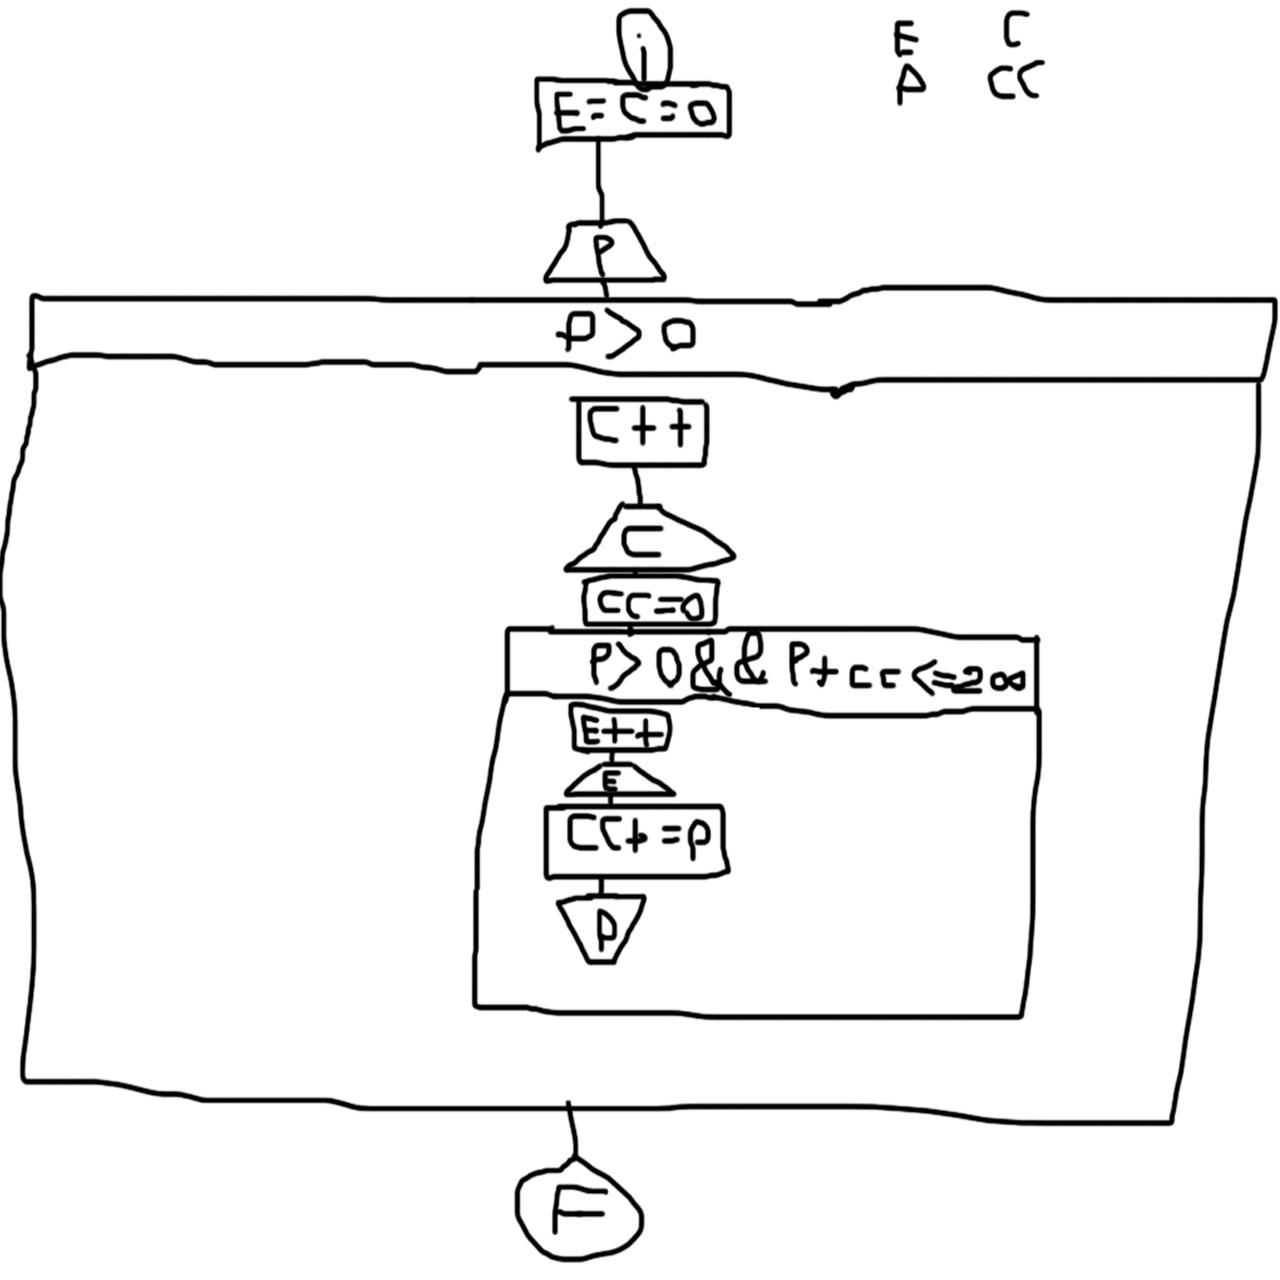 i
E C
P CC
E=C=0
P
P>0
C++
C
CC=0
P>0&&P+CC<=200
E++
E
CC+=P
P
F